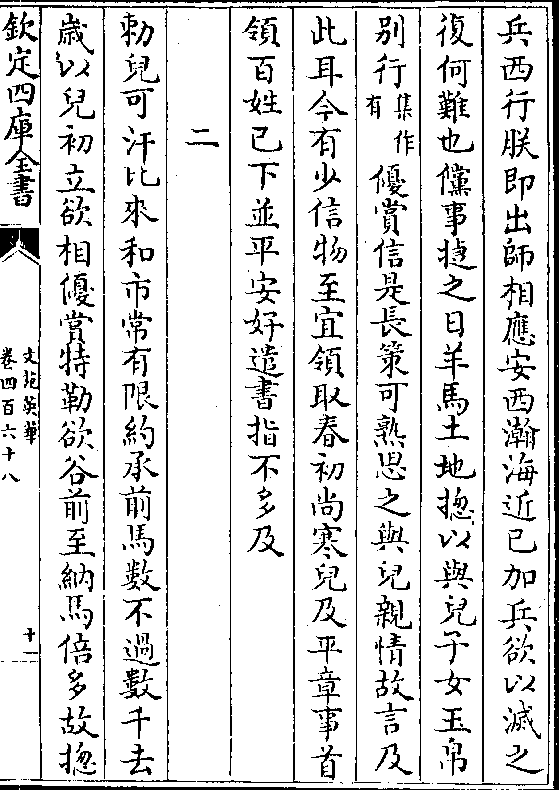 兵西行朕即出師相應安西瀚海近已加兵欲以滅之
復何難也儻事捷之日羊馬土地揔以與兒子女玉帛
别行集作有優賞信是長策可熟思之與兒親情故言及
此耳今有少信物至宜領取春初尚寒兒及平章事首
領百姓已下並平安好遣書指不多及
二
勅兒可汗比來和市常有限約承前馬數不過數千去
歲以兒初立欲相優賞特勒欲谷前至納馬倍多故揔
欽定四庫全書
文苑英華
卷四百六十八
十一